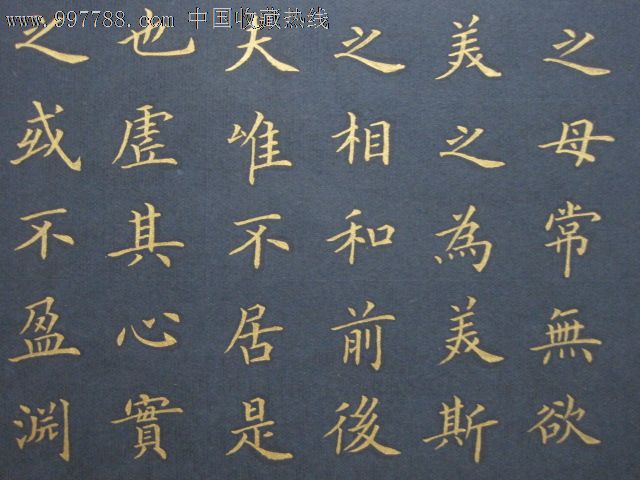 www.997788.com 中国收藏热线
之母常無欲
美之為美斯
之相和前後
夫唯不居是
也虛其心實
之或不盈淵